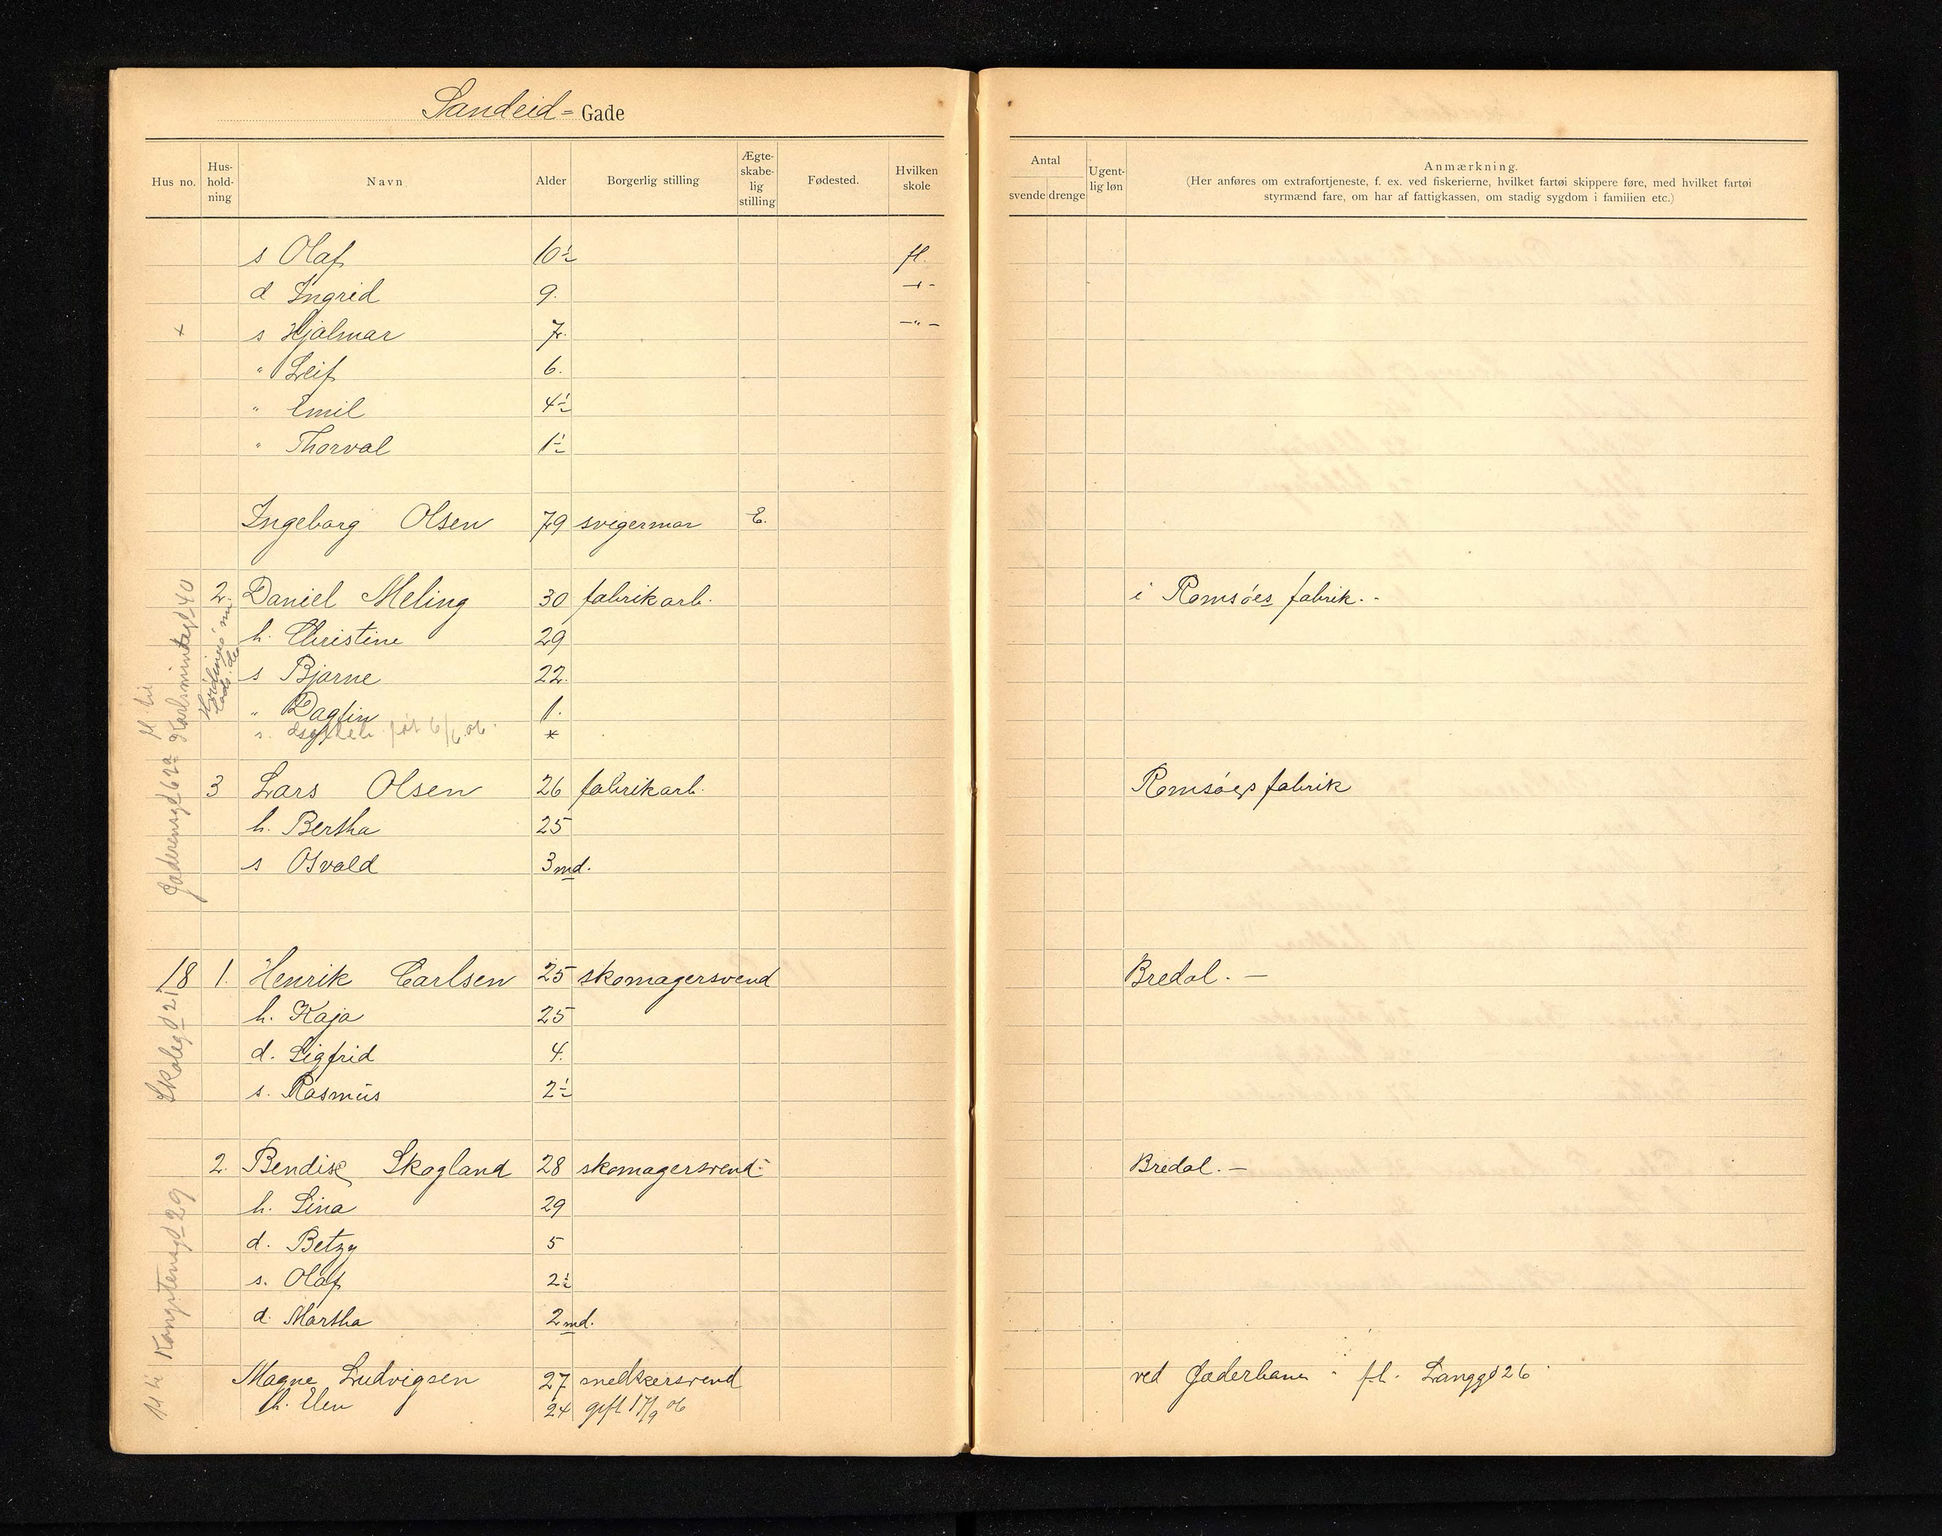 Sandeid- Gade
Hus no. Hus-hold-ning Navn Alder Borgerlig stilling Ægte-skabe-lig stilling Fødested. Hvilken skole
Antal svende drenge Ugent-lig løn Anmærkning.
(Her anføres om extrafortjeneste, f. ex. ved fiskerierne, hvilket fartøi skippere føre, med hvilket fartøi
styrmænd fare, om har af fattigkassen, om stadig sygdom i familien etc.)
s Olaf 10½ fl.
d Ingrid 9. -"-
+ s Hjalmar 7. -"-
" Leif 6.
" Emil 4½
" Thorval 1½
Ingeborg Olsen 79 svigermor E.
2. Daniel Meling 30 fabrikarb. i Romsöes fabrik.-
h. Christine 29
s Bjarne 22.
" Dagfin 1.
s. født 6/6.06. *
3 Lars Olsen 26 fabrikarb. Romsöes fabrik
h. Bertha 25
s Osvald 3 md.
fl. til
Jæderensgd 62a
18 1. Henrik Carlsen 25 skomagersvend Bredal.-
h. Kaja 25
d. Sigfrid 4.
s. Rasmus 2½
Skolegd 21
2. Bendix Skogland 28 skomagersvend- Bredal.-
h. Sina 29
d. Betzy 5
s. Olaf 2½
d. Martha 2 md.
Kongstensgd 29
Magne Ludvigsen 27 snedkersvend ved Jæderbanen fl. Langgd 26
h. Elen 24 gift 17/9 06